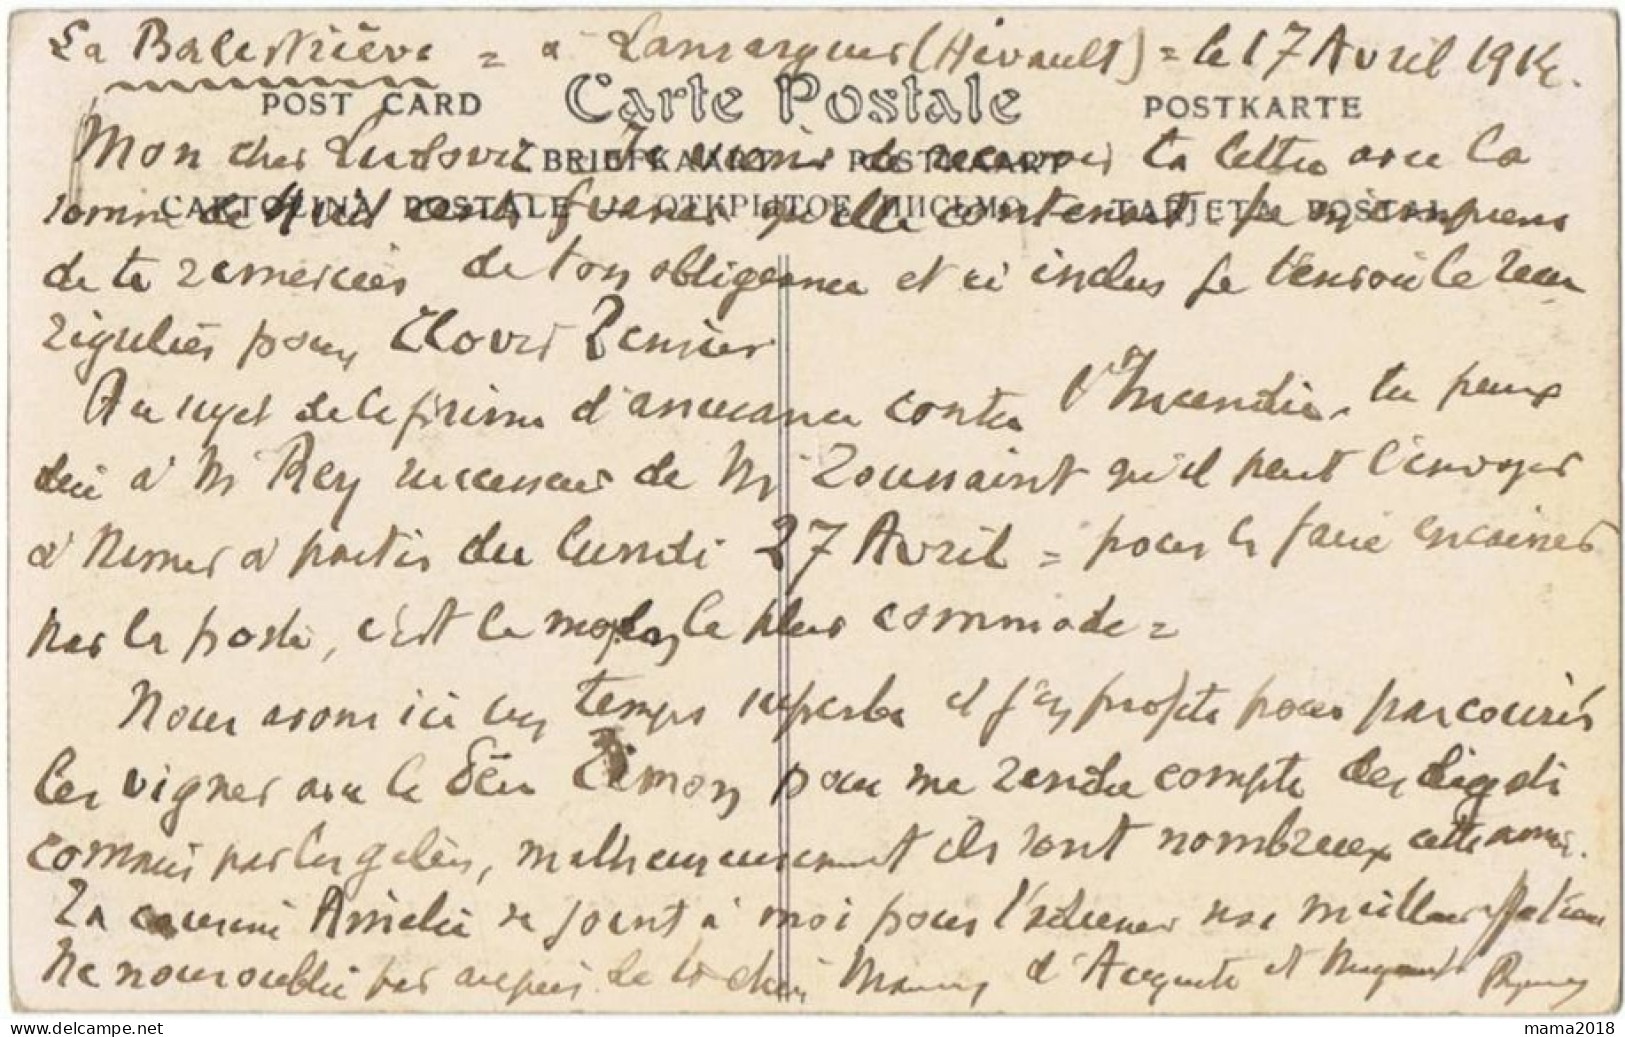 La Balestrière = à Lansargues (Hérault) = le 17 Avril 1914.
POST CARD Carte Postale POSTKARTE
Mon cher Ludovic Je viens de recevoir ta lettre avec la
BRIEFKAART POSTKAART
somme de Huit cents francs qu'elle contenait Je m'empresse
CARTOLINA POSTALE — ОТКРЫТОЕ ПИСЬМО — TARJETA POSTAL
de te remercier de ton obligeance et ci inclus Je t'envoie le recu
régulier pour Clovis
Au sujet de la prime d'assurance contre l'Incendie, tu peux
dire à Mr Rey successeur de Mr Toussaint qu'il peut l'envoyer
à Nimes à partir du lundi 27 Avril = pour la faire encaisser
par la poste, c'est le moyen le plus commode =
Nous avons ici un temps superbe et j'en profite pour parcourir
les vignes avec le Simon pour me rendre compte des dégats
commis par les gelées, malheureusement ils sont nombreux cette année.
Ta cousine Amélie se joint à moi pour t'adresser nos meilleures
Ne nous oublie pas auprès de ta chère d'Auguste et
mama2018